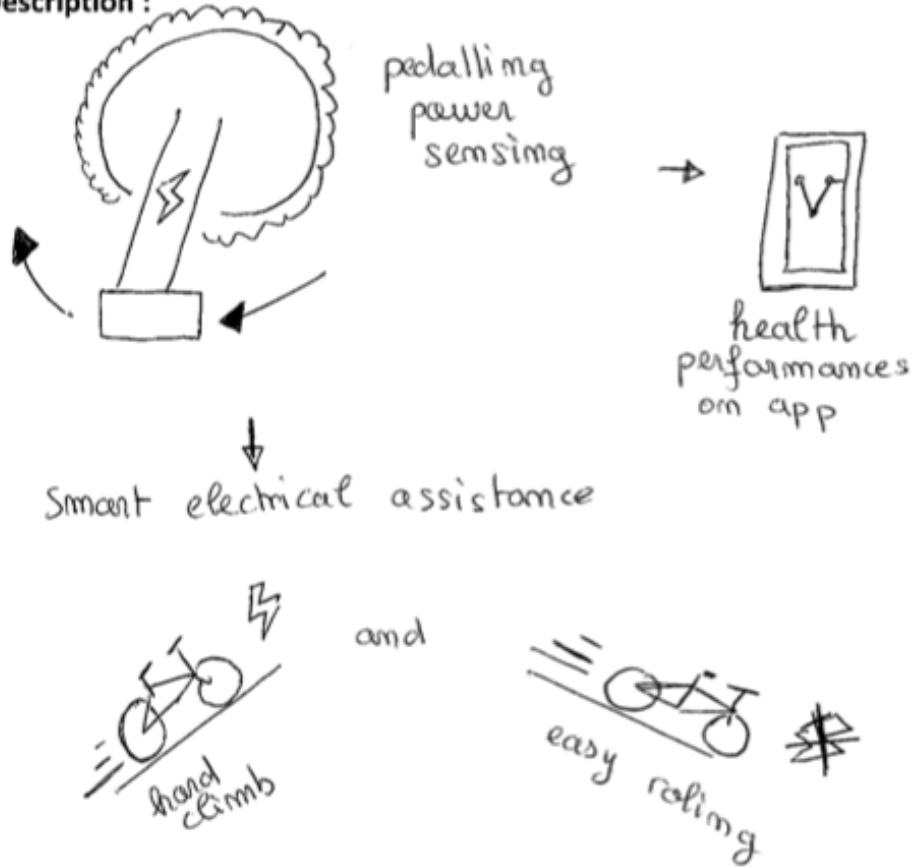 Description :
pedalling
power
sensing
health
performances
on app
Smart electrical assistance
and
hard
climb
easy roling